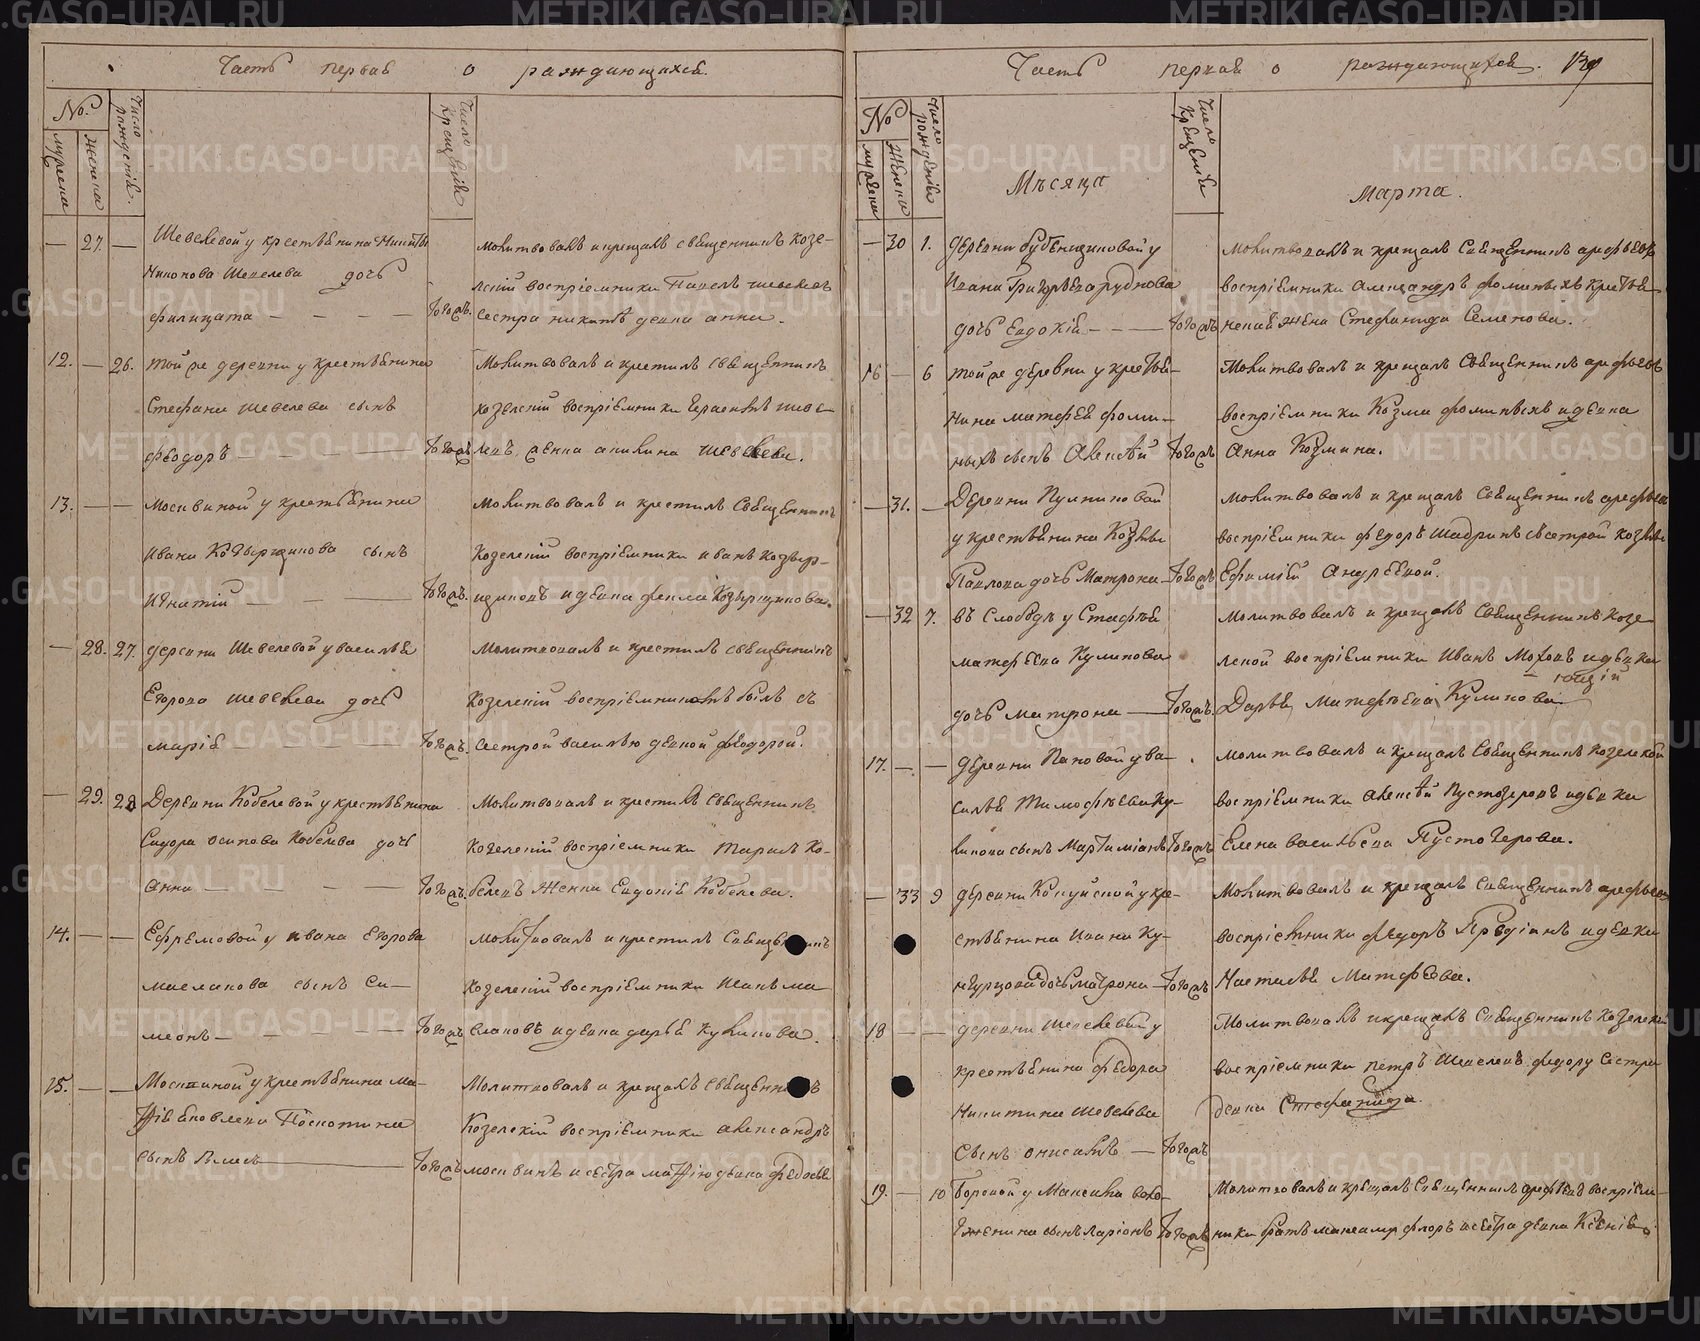 Часть первая о раждающихся.
№
мужеска
женска
Число рождения.
Число крещения
— 27. — Шевелевой у крестьянина Никиты
Никонова Шевелева дочь
Филицата — — — — Тогожъ.
молитвовалъ и крещалъ священникъ Козе-
лскій воспріемники Павелъ Шевелевъ
сестра никитѣ девка анна.
12. — 26. той же деревни у крестьянина
Стефана Шевелева сынъ
Феодоръ — — — Тогожъ
Молитвовалъ и крестилъ священникъ
козелскій воспріемники Герасимъ шеве-
левъ, девка акилина Шевелева.
13. — — Мосиной у крестьянина
Ивана Козырщикова сынъ
Игнатій — — — Тогожъ.
Молитвовалъ и крестилъ Священникъ
Козелскій воспріемники иванъ козыр-
щиковъ и девка фекла Козырщикова.
— 28. 27. деревни Шевелевой у василья
Егорова Шевелева дочь
Марія — — — — Тогожъ.
Молитвовалъ и крестилъ священникъ
Козелскій воспріемникомъ былъ съ
сестрой василью девкой феодорой.
— 29. 28 Деревни Кобелевой у крестьянина
Сидора осипова Кобелева дочь
Анна — — — Тогожъ.
Молитвовалъ и крестилъ священникъ
Козелскій воспріемники Тарасъ Ко-
белевъ Женка Евдокія Кобелева.
14. — — Ефремовой у ивана Егорова
маслакова сынъ Си-
меонъ — — — — Тогожъ
молитвовалъ и крестилъ Священникъ
Козелскій воспріемники Иванъ ма-
слаковъ и девка дарья Куликова.
15. — — Мосиной у крестьянина Ма-
тфія Яковлева Поскотина
сынъ Власъ — Тогожъ
Молитвовалъ и крещалъ священникъ
Козелскій воспріемники Александръ
мосинъ и сестра матфію девка федосья
Часть первая о раждающихся. 139
№
мужеска
женска
Число рожденія
Число Крещенія
Мѣсяца Марта.
— 30 1. деревни бубенщиковой у
Ивана Григорьева рудакова
дочь Евдокія — — — Тогожъ
Молитвовалъ и крещалъ Священникъ арефьевъ
воспріемники александръ фоминыхъ крестья-
нская Жена Стефанида Семенова.
16 — 6 той же деревни у крестья-
нина матфея фоми-
ныхъ сынъ Алексѣй Тогожъ
Молитвовалъ и крещалъ Священникъ арефьевъ
воспріемники Козма фоминыхъ и девка
Анна Козмина.
— 31. — Деревни
у крестьянина Козмы
Павлова дочь Матрона — Тогожъ
Молитвовалъ и крещалъ Священникъ арефьевъ
воспріемники федоръ Шадринъ с сестрой козмы
Ефиміей Андреевой.
— 32 7. въ Слободѣ у Стафѣя
матфѣева Куликова
дочь матрона — Тогожъ.
Молитвовалъ и крещалъ Священникъ козе-
лской воспріемники Иванъ и девка
Дарья Матфѣева Куликова.
17. — — деревни Пановой у ва-
силья Тимофѣева Ку-
ликова сынъ Мартиміанъ Тогожъ
Молитвовалъ и крещалъ Священникъ Козелской
воспріемники алексѣй Пустозеровъ и девка
Елена васильева Пустозерова.
— 33 9 деревни у кре-
стьянина Ивана Ку-
дочь матрона — Тогожъ
Молитвовалъ и крещалъ Священникъ арефьевъ
воспріемники федоръ и девка
Настасья Матфеева.
18 — — деревни Шевелевой у
крестьянина федора
Никитина Шевелева
Сынъ онисимъ — Тогожъ
Молитвовалъ и крещалъ Священникъ Козелской
воспріемники петръ Шевелевъ федору сестра
девка Стефанида.
19. — 10 Боровой у Максима
сынъ Ларіонъ Тогожъ
Молитвовалъ и крещалъ Священникъ арефьевъ воспріем-
ники братъ максиму флоръ и сестра девка Ксенія.
METRIKI.GASO-URAL.RU